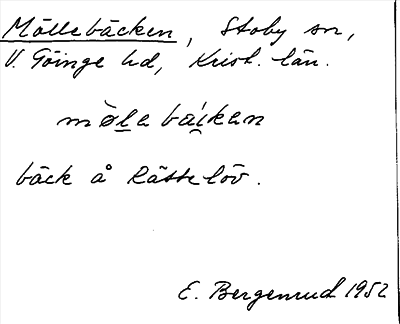 Möllebäcken, Stoby sn,
V. Göinge hd, Krist. län.
mølebaikan
bäck å Rättelöv.
E. Bergenrud 1952